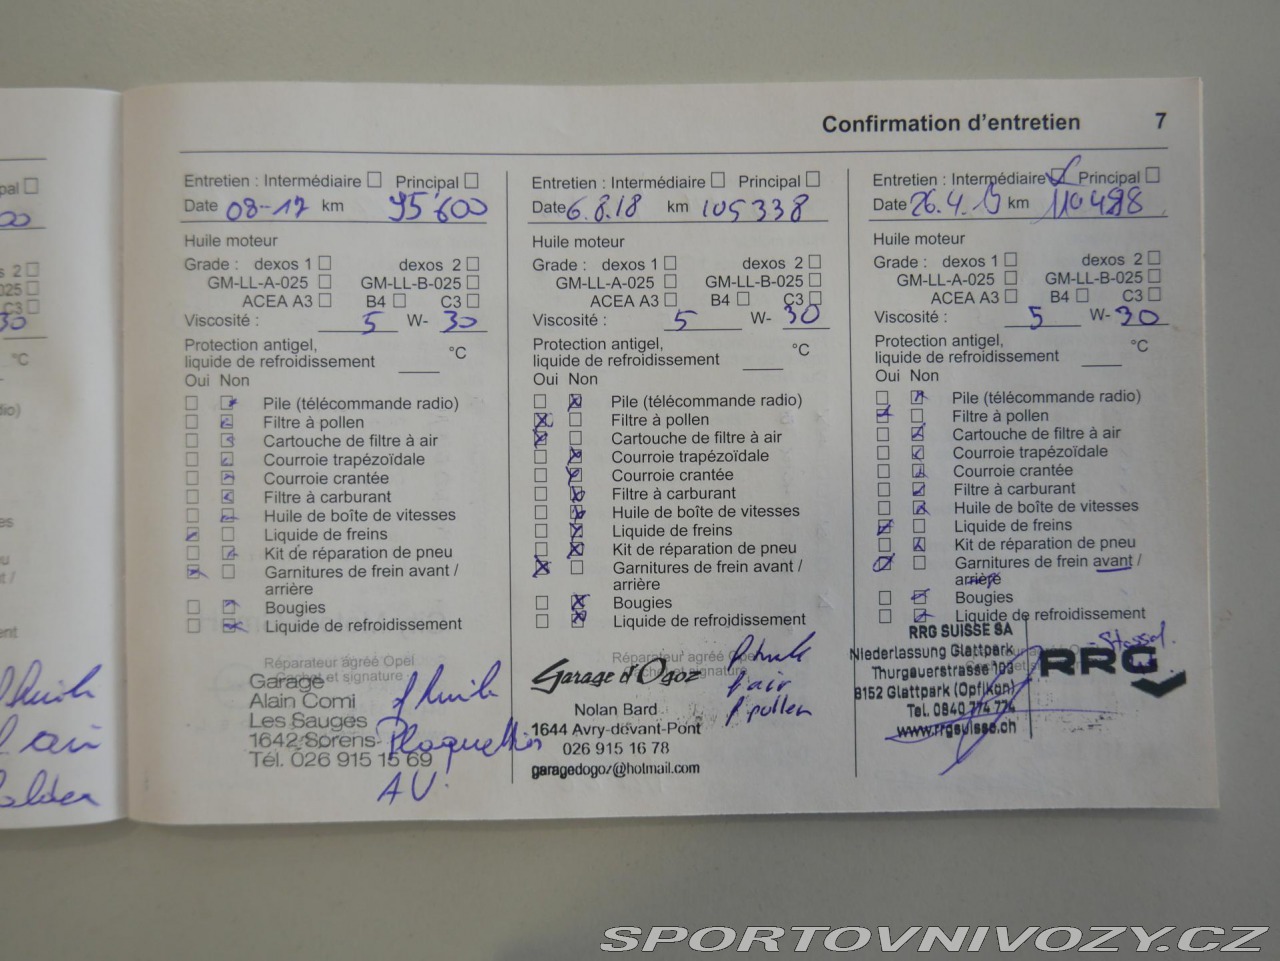 Confirmation d'entretien 7
Entretien : Intermédiaire Principal
Date 08-17 km 95'600
Huile moteur
Grade : dexos 1 dexos 2
GM-LL-A-025 GM-LL-B-025
ACEA A3 B4 C3
Viscosité : 5 W- 30
Protection antigel,
liquide de refroidissement °C
Oui Non
Pile (télécommande radio)
Filtre à pollen
Cartouche de filtre à air
Courroie trapézoïdale
Courroie crantée
Filtre à carburant
Huile de boîte de vitesses
Liquide de freins
Kit de réparation de pneu
Garnitures de frein avant /
arrière
Bougies
Liquide de refroidissement
Réparateur agréé Opel
Cachet et signature
Garage
Alain Comi
Les Sauges
1642 Sorens
Tél. 026 915 15 69
f huile
AV.
Entretien : Intermédiaire Principal
Date 6.8.18 km 105338
Huile moteur
Grade : dexos 1 dexos 2
GM-LL-A-025 GM-LL-B-025
ACEA A3 B4 C3
Viscosité : 5 W- 30
Protection antigel,
liquide de refroidissement °C
Oui Non
Pile (télécommande radio)
Filtre à pollen
Cartouche de filtre à air
Courroie trapézoïdale
Courroie crantée
Filtre à carburant
Huile de boîte de vitesses
Liquide de freins
Kit de réparation de pneu
Garnitures de frein avant /
arrière
Bougies
Liquide de refroidissement
Réparateur agréé Opel
Cachet et signature
Garage d'Ogoz
Nolan Bard
1644 Avry-devant-Pont
026 915 16 78
garagedogoz@hotmail.com
f huile
f air
f pollen
Entretien : Intermédiaire Principal
Date 26.4.19 km 110498
Huile moteur
Grade : dexos 1 dexos 2
GM-LL-A-025 GM-LL-B-025
ACEA A3 B4 C3
Viscosité : 5 W- 30
Protection antigel,
liquide de refroidissement °C
Oui Non
Pile (télécommande radio)
Filtre à pollen
Cartouche de filtre à air
Courroie trapézoïdale
Courroie crantée
Filtre à carburant
Huile de boîte de vitesses
Liquide de freins
Kit de réparation de pneu
Garnitures de frein avant /
arrière
Bougies
Liquide de refroidissement
RRG SUISSE SA
Niederlassung Glattpark
Thurgauerstrasse 103
8152 Glattpark (Opfikon)
Tel. 0840 774 774
www.rrgsuisse.ch
RRG
SPORTOVNIVOZY.CZ